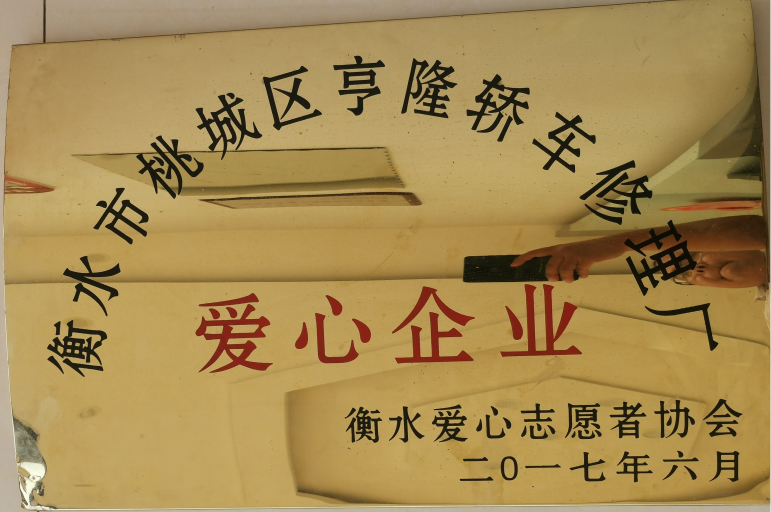 衡水市桃城区亨隆轿车修理厂
爱心企业
衡水爱心志愿者协会
二0一七年六月